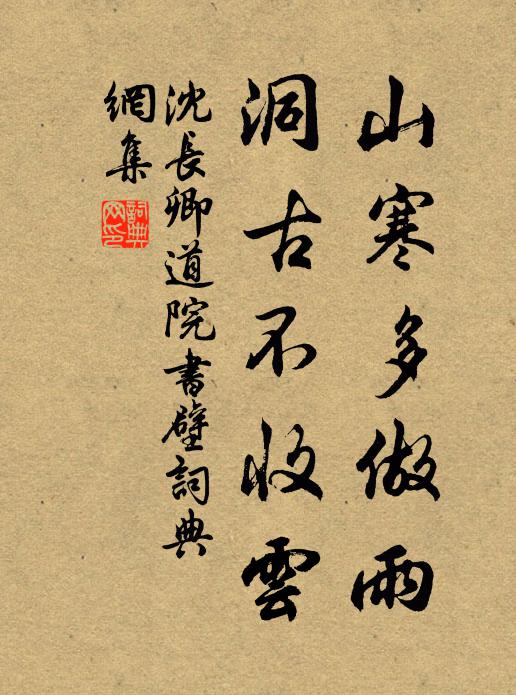 山寒多做雨
洞古不收雲
沈長卿道院書壁詞典
網集
詞典
网印